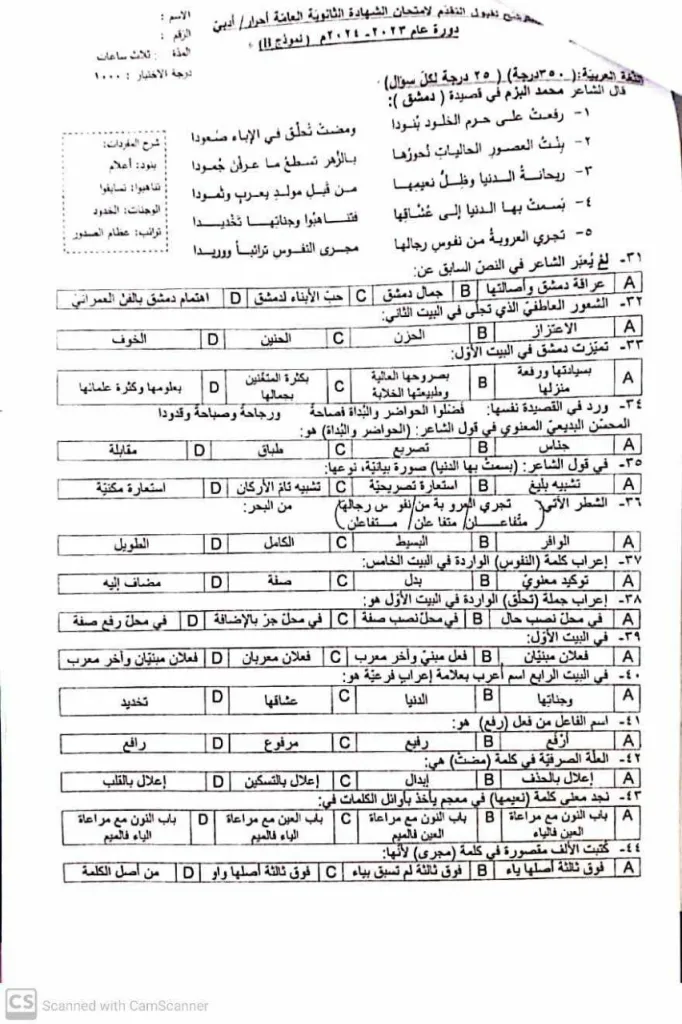 ترشح لقبول التقدم لامتحان الشهادة الثانوية العامة أحرار/ أدبي
دورة عام ٢٠٢٣-٢٠٢٤م (نموذج II)
الاسم :
الرقم :
المدة : ثلاث ساعات
درجة الاختبار : ١٠٠٠
اللغة العربية: (٣٥٠ درجة) (٢٥ درجة لكل سؤال)
قال الشاعر محمد البزم في قصيدة (دمشق):
١- رفعتْ على حرم الخلود بُنودا ومضتْ تُحلّق في الإباء صُعودا
٢- بِنْتُ العصور الحالياتِ نُحورُها بالزُهر تسطعُ ما عرفْن جُمودا
٣- ريحانةُ الدنيا وظِلُّ نعيمِها من قبلِ مولدِ يعربٍ وثمودا
٤- بَسمتْ بها الدنيا إلى عُشّاقِها فتناهبُوا وجناتِها تَخْديدا
٥- تجري العروبةُ من نفوسِ رجالها مجرى النفوس ترائباً ووريدا
شرح المفردات:
بنود: أعلام
تناهبوا: تسابقوا
الوجنات: الخدود
ترائب: عظام الصدور
٣١- لم يُعبّر الشاعر في النصّ السابق عن:
A عراقة دمشق وأصالتها B جمال دمشق C حبّ الأبناء لدمشق D اهتمام دمشق بالفن العمراني
٣٢- الشعور العاطفي الذي تجلّى في البيت الثاني:
A الاعتزاز B الحزن C الحنين D الخوف
٣٣- تميّزت دمشق في البيت الأوّل:
A بسيادتها ورفعة منزلها B بصروحها العالية وطبيعتها الخلابة C بكثرة المتغنّين بجمالها D بعلومها وكثرة علمائها
٣٤- ورد في القصيدة نفسها: فضلوا الحواضر والبُداة فصاحةً ورجاحةً وصباحةً وقدودا
المحسّن البديعيّ المعنوي في قول الشاعر: (الحواضر والبُداة) هو:
A جناس B تصريع C طباق D مقابلة
٣٥- في قول الشاعر: (بسمتْ بها الدنيا) صورة بيانيّة، نوعها:
A تشبيه بليغ B استعارة تصريحيّة C تشبيه تامّ الأركان D استعارة مكنيّة
٣٦- الشطر الآتي: تجري العروبة من/ نفوس رجالها من البحر:
(متْفاعلن/ متفاعلن/ متفاعلن)
A الوافر B البسيط C الكامل D الطويل
٣٧- إعراب كلمة (النفوس) الواردة في البيت الخامس:
A توكيد معنويّ B بدل C صفة D مضاف إليه
٣٨- إعراب جملة (تحلّق) الواردة في البيت الأوّل هو:
A في محلّ نصب حال B في محلّ نصب صفة C في محلّ جرّ بالإضافة D في محلّ رفع صفة
٣٩- في البيت الأوّل:
A فعلان مبنيّان B فعل مبنيّ وآخر معرب C فعلان معربان D فعلان مبنيّان وآخر معرب
٤٠- في البيت الرابع اسم أُعرب بعلامة إعراب فرعيّة هو:
A وجناتها B الدنيا C عشاقها D تخديد
٤١- اسم الفاعل من فعل (رفع) هو:
A أرْفع B رفيع C مرفوع D رافع
٤٢- العلّة الصرفيّة في كلمة (مضتْ) هي:
A إعلال بالحذف B إبدال C إعلال بالتسكين D إعلال بالقلب
٤٣- نجد معنى كلمة (نعيمها) في معجم يأخذ بأوائل الكلمات في:
A باب النون مع مراعاة العين فالياء B باب النون مع مراعاة العين فالميم C باب العين مع مراعاة الياء فالميم D باب النون مع مراعاة الياء فالميم
٤٤- كُتبت الألف مقصورة في كلمة (مجرى) لأنّها:
A فوق ثالثة أصلها ياء B فوق ثالثة لم تسبق بياء C فوق ثالثة أصلها واو D من أصل الكلمة
CS Scanned with CamScanner